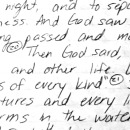 night, and to sepa
ness. And God saw
ng passed and mo
20 Then God said,
and other life.
s of every kind" 21
tures and every li
rms in the water